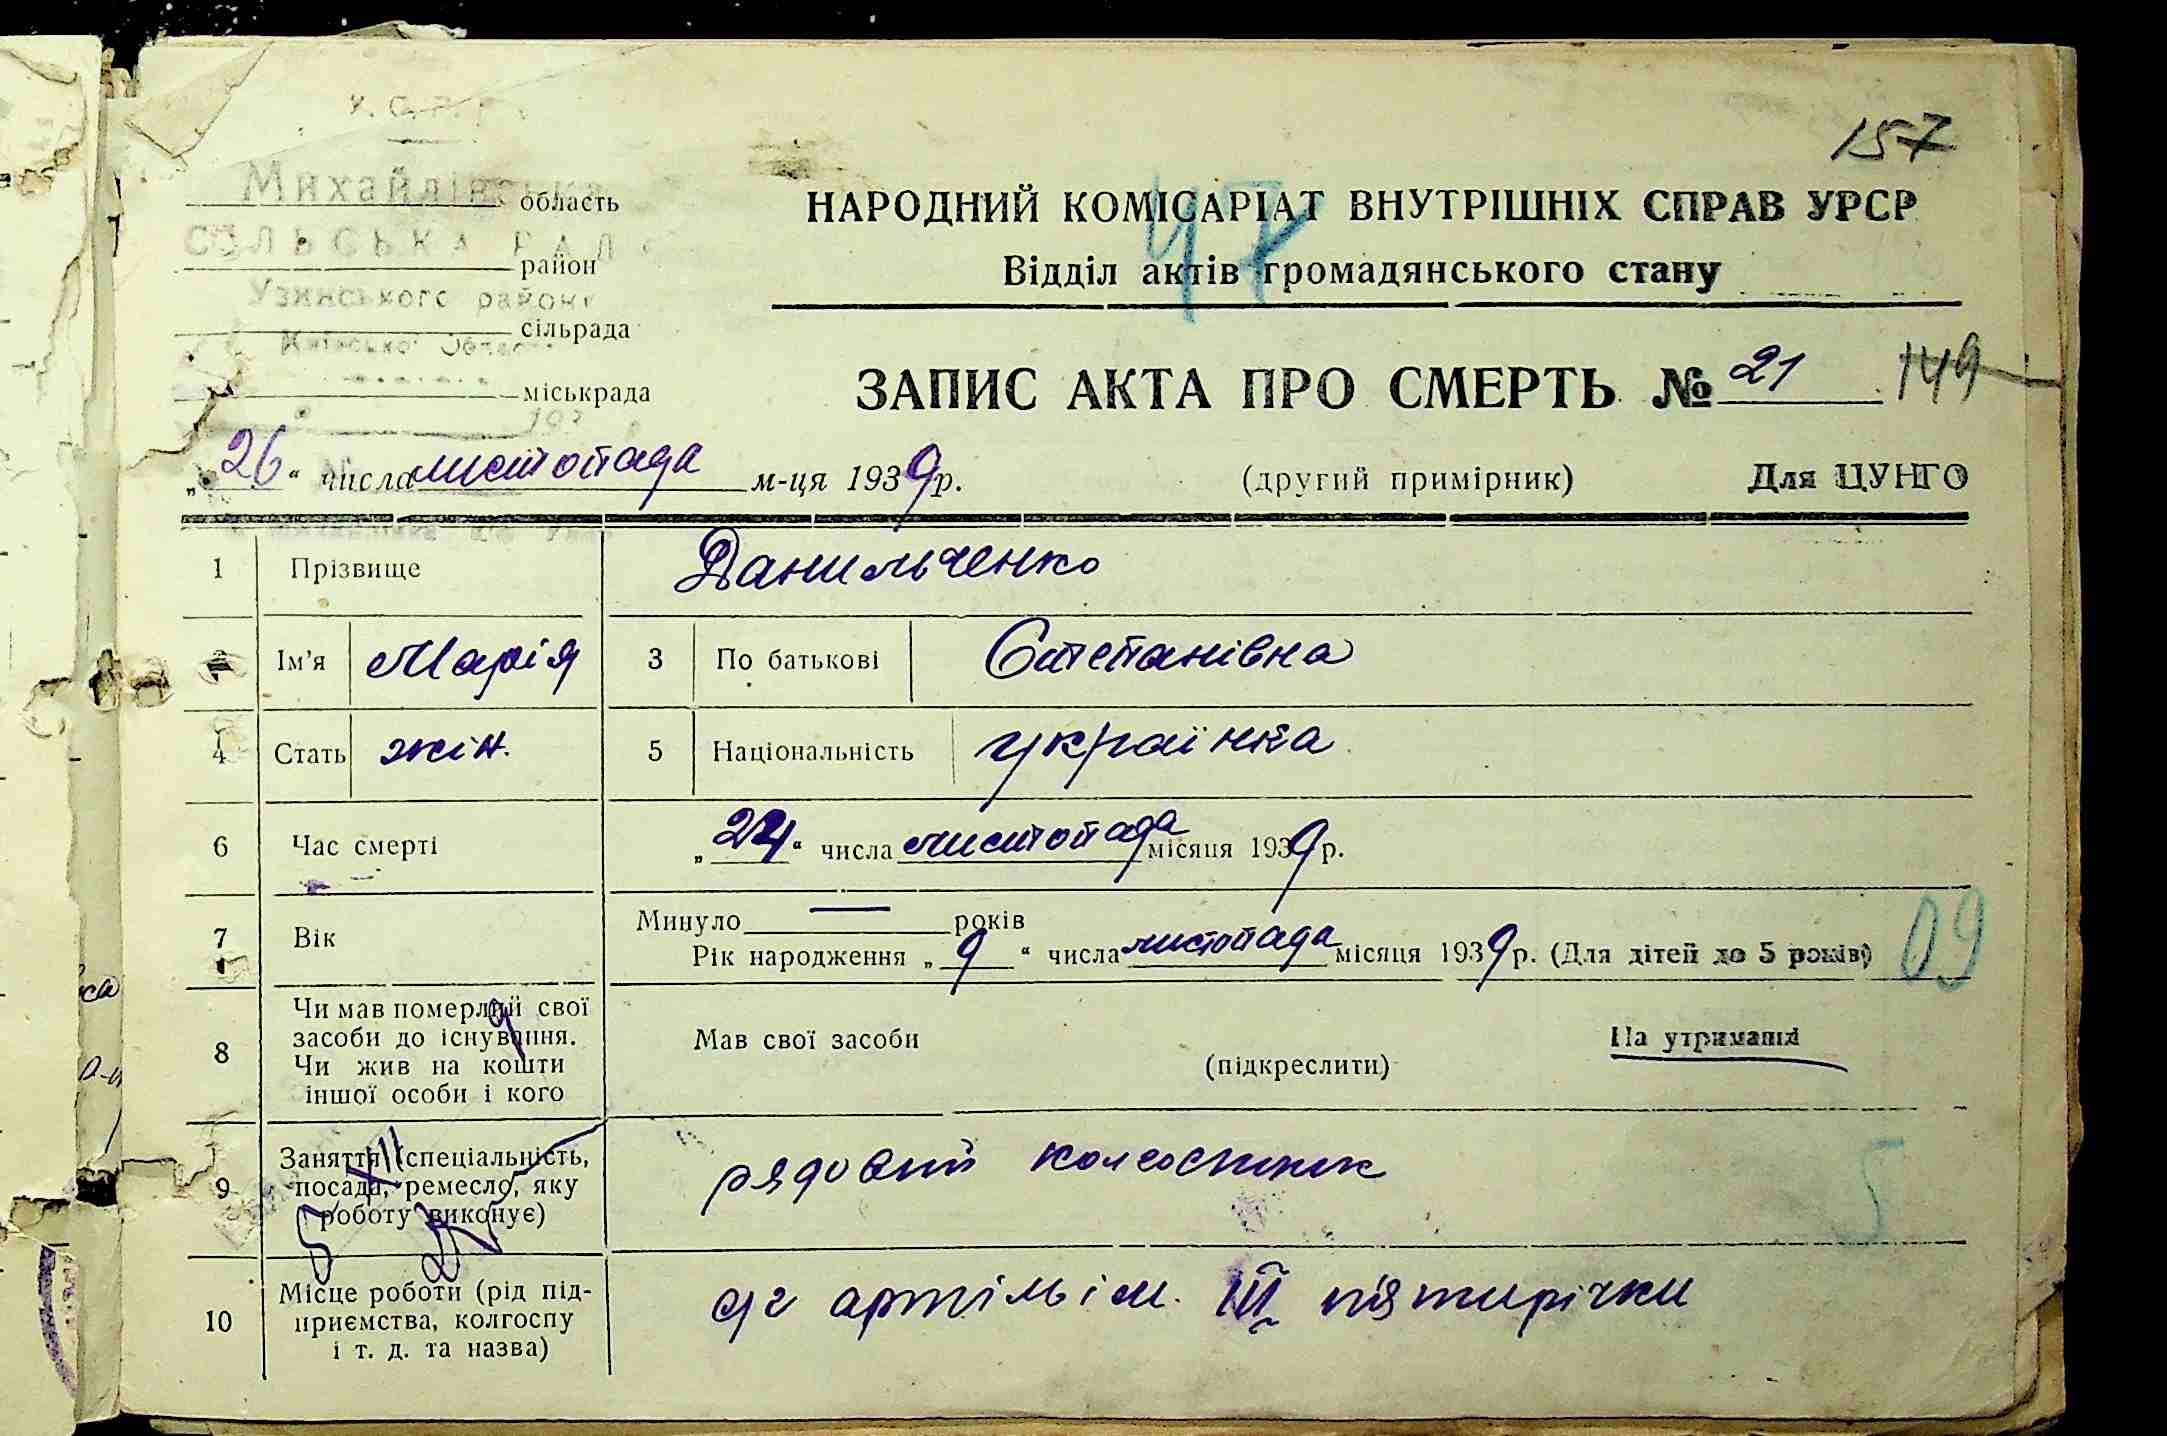 У.С.Р.Р.
157
Михайлівська
область
СІЛЬСЬКА РАДА
район
Узинського району
сільрада
Київської області
міськрада
НАРОДНИЙ КОМІСАРІАТ ВНУТРІШНІХ СПРАВ УРСР
47
Відділ актів громадянського стану
ЗАПИС АКТА ПРО СМЕРТЬ № 21 149
„26“ числа листопада м-ця 1939 р. (другий примірник) Для ЦУНГО
1 Прізвище Данильченко
2 Ім’я Марія 3 По батькові Степанівна
4 Стать жін. 5 Національність українка
6 Час смерті „24“ числа листопада місяця 1939 р.
7 Вік Минуло — років
Рік народження „9“ числа листопада місяця 1939 р. (Для дітей до 5 років) 09
8 Чи мав померлий свої
засоби до існування.
Чи жив на кошти
іншої особи і кого
Мав свої засоби (підкреслити) На утриманні
9 Заняття (спеціальність,
посада, ремесло, яку
роботу виконує)
рядовий колгоспник
5
10 Місце роботи (рід під-
приємства, колгоспу
і т. д. та назва)
с/г артіль ім. III п'ятирічки